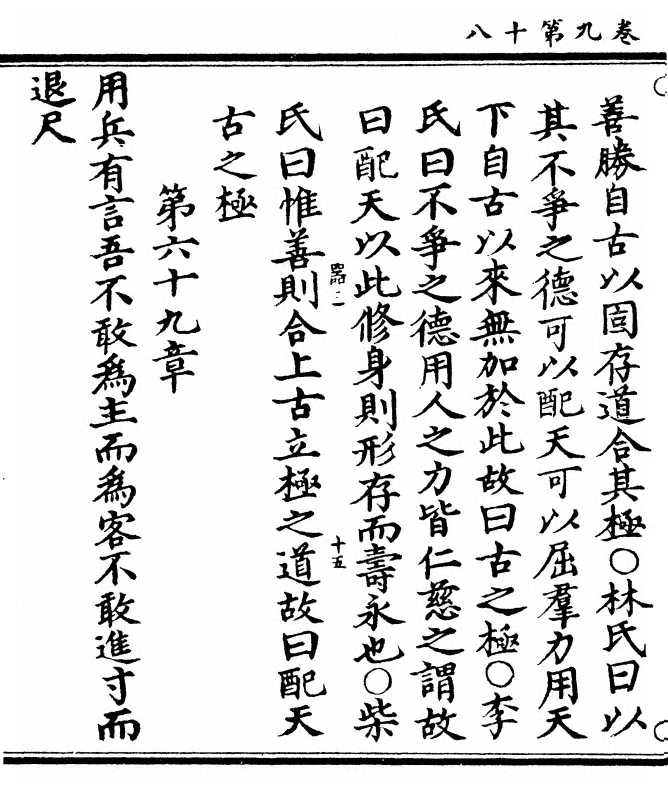 卷九第十八
善勝自古以固存道合其極○林氏曰以
其不爭之德可以配天可以屈羣力用天
下自古以來無加於此故曰古之極○李
氏曰不爭之德用人之力皆仁慈之謂故
曰配天以此脩身則形存而壽永也○柴
十五
氏曰惟善則合上古立極之道故曰配天
古之極
第六十九章
用兵有言吾不敢爲主而爲客不敢進寸而
退尺